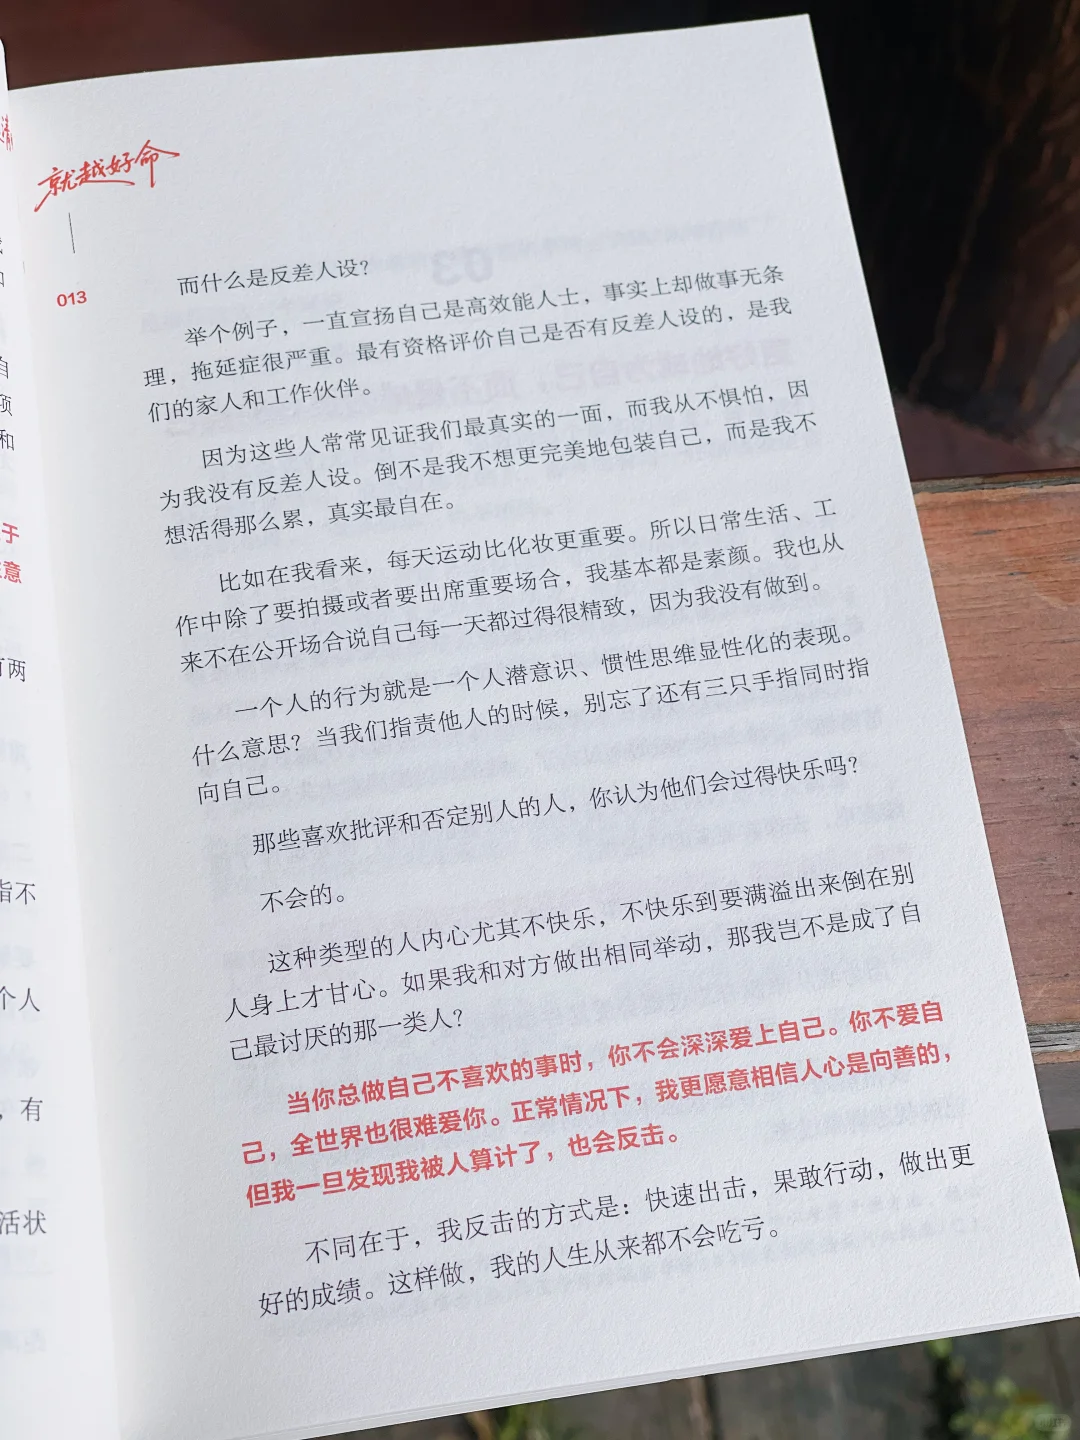 就越好命
013
而什么是反差人设？
举个例子，一直宣扬自己是高效能人士，事实上却做事无条
理，拖延症很严重。最有资格评价自己是否有反差人设的，是我
们的家人和工作伙伴。
因为这些人常常见证我们最真实的一面，而我从不惧怕，因
为我没有反差人设。倒不是我不想更完美地包装自己，而是我不
想活得那么累，真实最自在。
比如在我看来，每天运动比化妆更重要。所以日常生活、工
作中除了要拍摄或者要出席重要场合，我基本都是素颜。我也从
来不在公开场合说自己每一天都过得很精致，因为我没有做到。
一个人的行为就是一个人潜意识、惯性思维显性化的表现。
什么意思？当我们指责他人的时候，别忘了还有三只手指同时指
向自己。
那些喜欢批评和否定别人的人，你认为他们会过得快乐吗？
不会的。
这种类型的人内心尤其不快乐，不快乐到要满溢出来倒在别
人身上才甘心。如果我和对方做出相同举动，那我岂不是成了自
己最讨厌的那一类人？
当你总做自己不喜欢的事时，你不会深深爱上自己。你不爱自
己，全世界也很难爱你。正常情况下，我更愿意相信人心是向善的，
但我一旦发现我被人算计了，也会反击。
不同在于，我反击的方式是：快速出击，果敢行动，做出更
好的成绩。这样做，我的人生从来都不会吃亏。
和
于
意
两
指不
个人
，有
活状